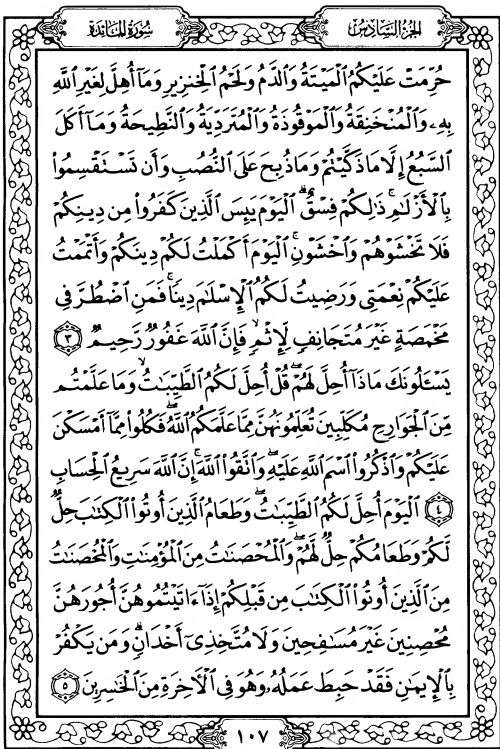 الجزء السادس
سورة المائدة
حُرِّمَتْ عَلَيْكُمُ الْمَيْتَةُ وَالدَّمُ وَلَحْمُ الْخِنزِيرِ وَمَا أُهِلَّ لِغَيْرِ اللَّهِ
بِهِ وَالْمُنْخَنِقَةُ وَالْمَوْقُوذَةُ وَالْمُتَرَدِّيَةُ وَالنَّطِيحَةُ وَمَا أَكَلَ
السَّبُعُ إِلَّا مَا ذَكَّيْتُمْ وَمَا ذُبِحَ عَلَى النُّصُبِ وَأَن تَسْتَقْسِمُوا
بِالْأَزْلَٰمِ ۚ ذَٰلِكُمْ فِسْقٌ ۗ الْيَوْمَ يَئِسَ الَّذِينَ كَفَرُوا مِن دِينِكُمْ
فَلَا تَخْشَوْهُمْ وَاخْشَوْنِ ۚ الْيَوْمَ أَكْمَلْتُ لَكُمْ دِينَكُمْ وَأَتْمَمْتُ
عَلَيْكُمْ نِعْمَتِي وَرَضِيتُ لَكُمُ الْإِسْلَٰمَ دِينًا ۚ فَمَنِ اضْطُرَّ فِي
مَخْمَصَةٍ غَيْرَ مُتَجَانِفٍ لِّإِثْمٍ ۙ فَإِنَّ اللَّهَ غَفُورٌ رَّحِيمٌ ٣
يَسْـَٔلُونَكَ مَاذَا أُحِلَّ لَهُمْ ۖ قُلْ أُحِلَّ لَكُمُ الطَّيِّبَٰتُ ۙ وَمَا عَلَّمْتُم
مِّنَ الْجَوَارِحِ مُكَلِّبِينَ تُعَلِّمُونَهُنَّ مِمَّا عَلَّمَكُمُ اللَّهُ ۖ فَكُلُوا مِمَّا أَمْسَكْنَ
عَلَيْكُمْ وَاذْكُرُوا اسْمَ اللَّهِ عَلَيْهِ ۖ وَاتَّقُوا اللَّهَ ۚ إِنَّ اللَّهَ سَرِيعُ الْحِسَابِ
٤ الْيَوْمَ أُحِلَّ لَكُمُ الطَّيِّبَٰتُ ۖ وَطَعَامُ الَّذِينَ أُوتُوا الْكِتَٰبَ حِلٌّ
لَّكُمْ وَطَعَامُكُمْ حِلٌّ لَّهُمْ ۖ وَالْمُحْصَنَٰتُ مِنَ الْمُؤْمِنَٰتِ وَالْمُحْصَنَٰتُ
مِنَ الَّذِينَ أُوتُوا الْكِتَٰبَ مِن قَبْلِكُمْ إِذَا ءَاتَيْتُمُوهُنَّ أُجُورَهُنَّ
مُحْصِنِينَ غَيْرَ مُسَٰفِحِينَ وَلَا مُتَّخِذِي أَخْدَانٍ ۗ وَمَن يَكْفُرْ
بِالْإِيمَٰنِ فَقَدْ حَبِطَ عَمَلُهُ وَهُوَ فِي الْآخِرَةِ مِنَ الْخَٰسِرِينَ ٥
١٠٧